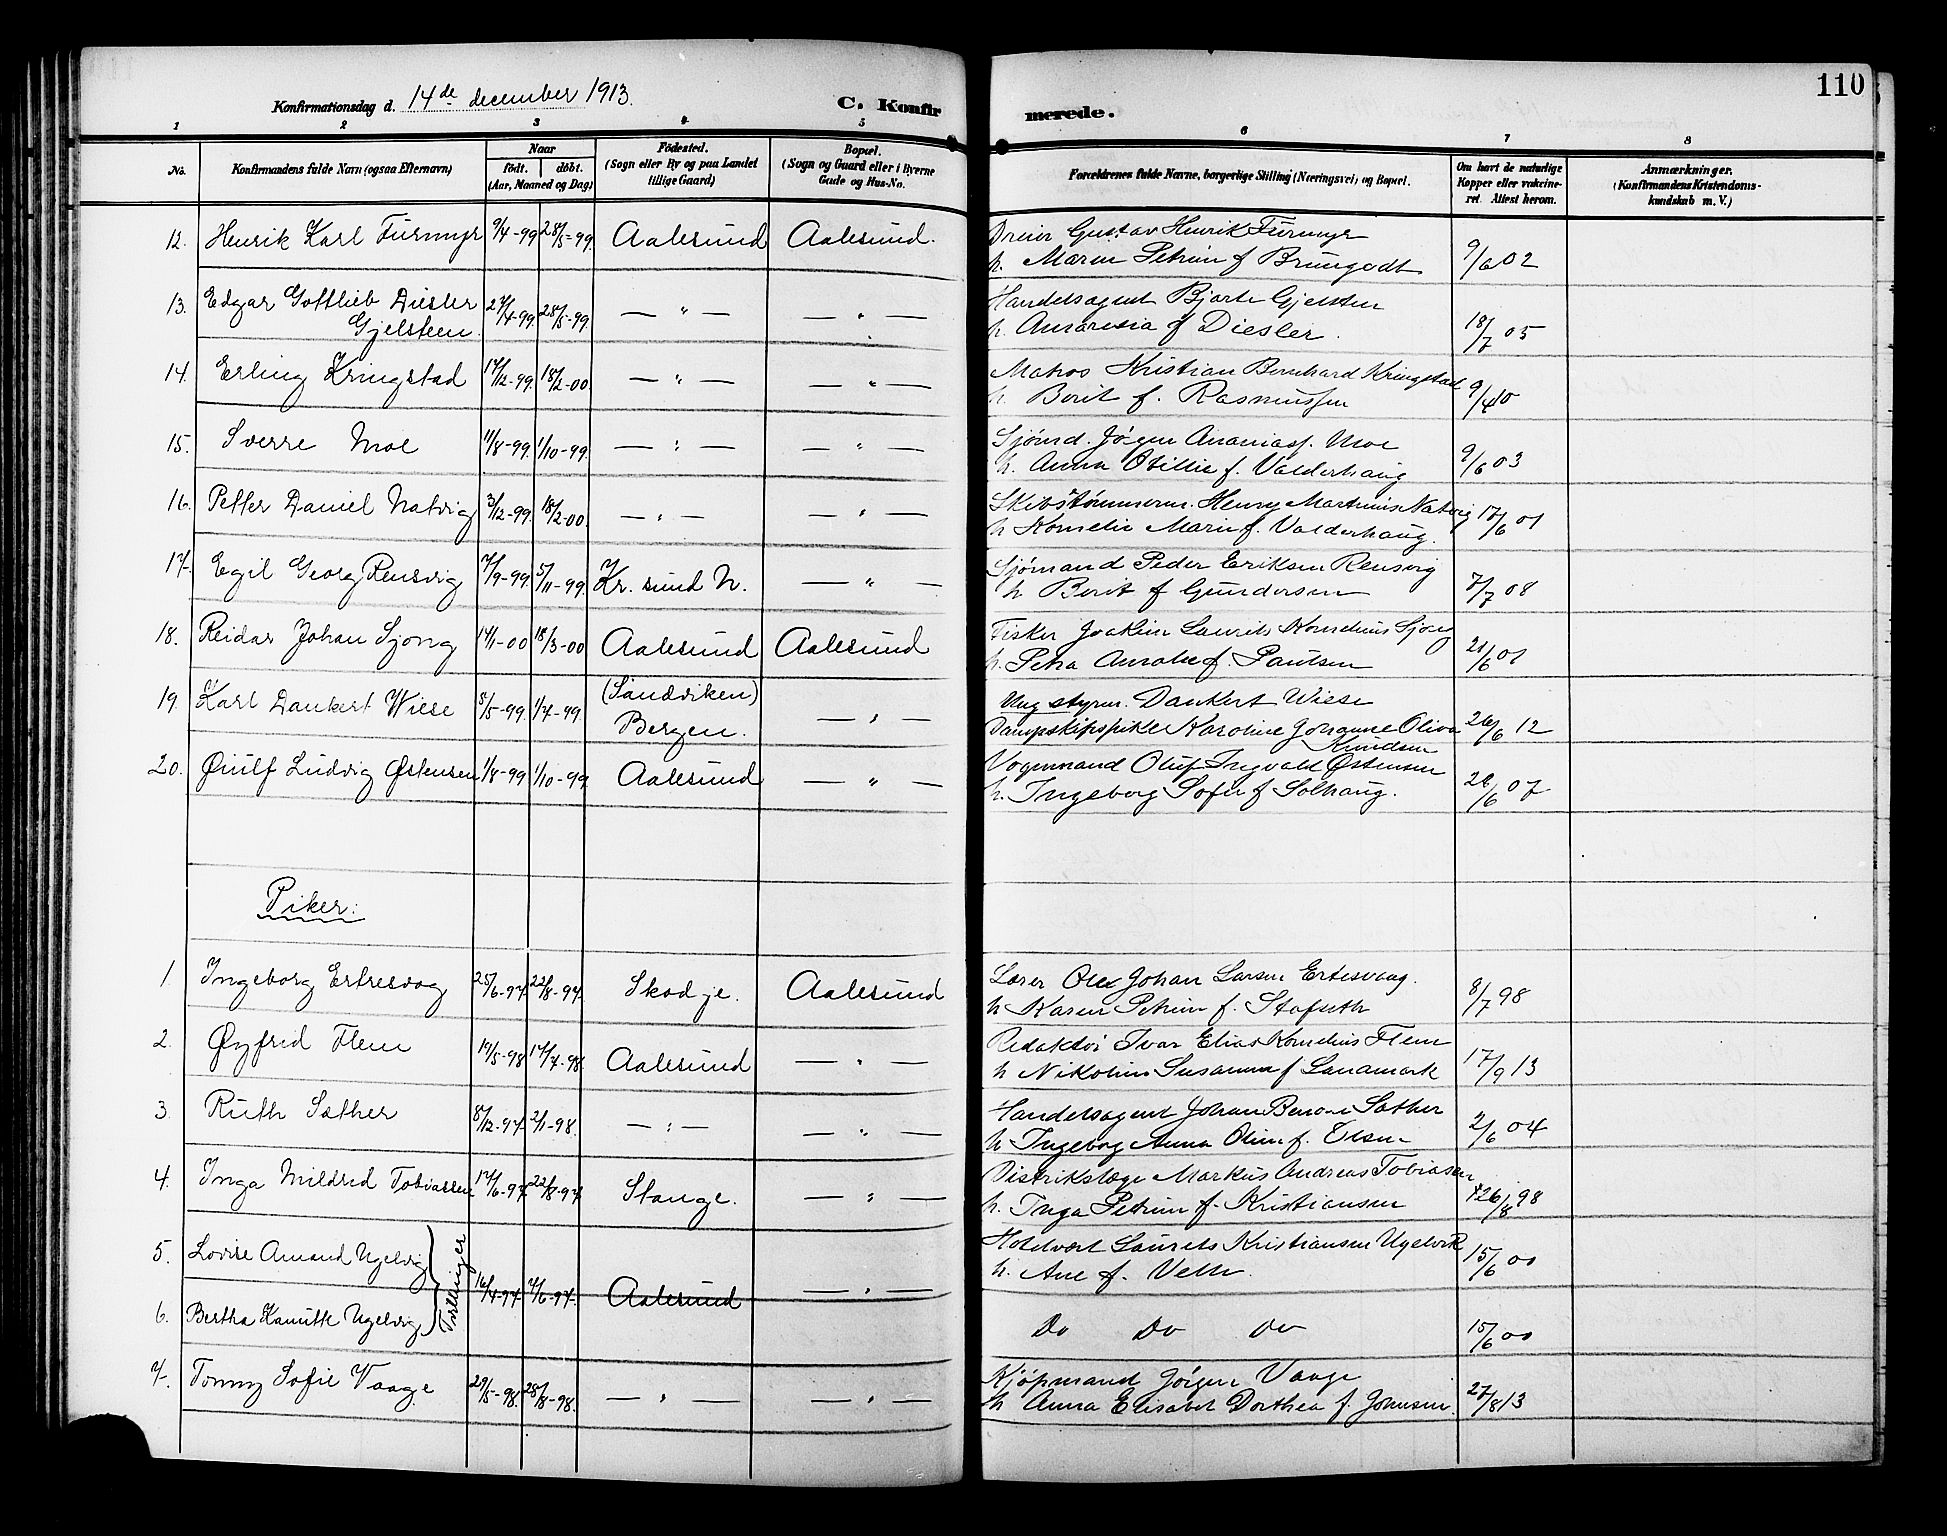 110
Konfirmationsdag d. 14de december 1913.
C. Konfirmerede.
1 2 3 4 5 6 7 8
No.
Konfirmandens fulde Navn (ogsaa Efternavn)
Naar
født. døbt.
(Aar, Maaned og Dag)
Fødested.
(Sogn eller By og paa Landet
tillige Gaard)
Bopæl.
(Sogn og Gaard eller i Byerne
Gade og Hus-No.
Forældrenes fulde Navne, borgerlige Stilling (Næringsvei) og Bopæl.
Om havt de naturlige
Kopper eller vakcine-
ret. Attest herom.
Anmærkninger.
(Konfirmandens Kristendoms-
kundskab m. V.)
12. Henrik Karl Furmyr 9/4-99 28/5-99. Aalesund Aalesund. Dreier Gustav Henrik Furmyr
h. Maren Petrine f Brungodt 9/6 02
13. Edgar Gottlieb Diesler
Gjelsteen. 27/4-99. 28/5-99. — " — — " — Handelsagent Bjarte Gjelsten
h. Anaresia f Diesler. 18/7 05
14. Erling Kringstad 17/12-99. 18/2-00. — " — — " — Matros Kristian Bernhard Kringstad
h. Berit f. Rasmussen 9/4 10
15. Sverre Moe 11/8-99. 1/10-99. — " — — " — Sjømd. Jørgen Ananiass. Moe
h. Anna Otillie f. Valderhaug 9/6 03
16. Petter Daniel Natvig 3/12-99. 18/2-00. — " — — " — Skibstømmerm. Henry Martinius Natvig
h Kornelie Marie f. Valderhaug. 17/6 01
17. Egil Georg Rensvig 7/9-99. 5/11-99. Kr. sund N. — " — Sjømand Peder Eriksen Rensvig
h Berit f Gundersen 7/7 08
18. Reidar Johan Sjong 14/1-00 18/3-00 Aalesund Aalesund Fisker Joakim Laurits Kornelius Sjong
h. Petra Amalie f. Paulsen 21/6 01
19. Karl Dankert Wiese 8/5-99. 1/7-99. (Sandviken)
Bergen. — " — Ung styrm. Dankert Wiese
Dampskipspike Karoline Johanne Oliva
Knudsen 26/6 12
20. Øiulf Ludvig Østensen 1/8-99 1/10-99. Aalesund — " — Vognmand Oluf Ingvald Østensen
h. Ingeborg Sofie f Solhaug. 26/6 07
Piker:
1. Ingeborg Ertresvog 25/6-97. 22/8-97. Skodje. Aalesund Lærer Ole Johan Larsen Ertesvaag.
h Karen Petrine f. Stafseth 8/7 98
2. Øyfrid Flem 19/5-98 17/7-98. Aalesund — " — Redaktør Ivar Elias Kornelius Flem
h Nikoline Susanna f Landmark 17/9 13
3. Ruth Sæther 8/12-97. 2/1-98. — " — — " — Handelsagent Johan Benone Sæther
h Ingeborg Anna Oline f. Olsen 2/6 04
4. Inga Mildred Tobiassen 17/6-97. 22/8-97 Stange. — " — Distriktslæge Markus Andreas Tobiasen
h. Inga Petrine f. Kristiansen 26/8 98
5. Lovise Amand Ugelvig
6. Bertha Kamitte Ugelvig
Tvillinger
16/4-97. 7/6-97. Aalesund — " — Hotelvert Laurets Kristiansen Ugelvik
h. Ane f. Velle. 15/6 00
Do Do Do 15/6 00
7. Tonny Sofie Vaage 29/5-98. 28/8-98. — " — — " — Kjøpmand Jørgen Vaage
h Anna Elisabet Dorthea f. Johnsen. 27/8 13